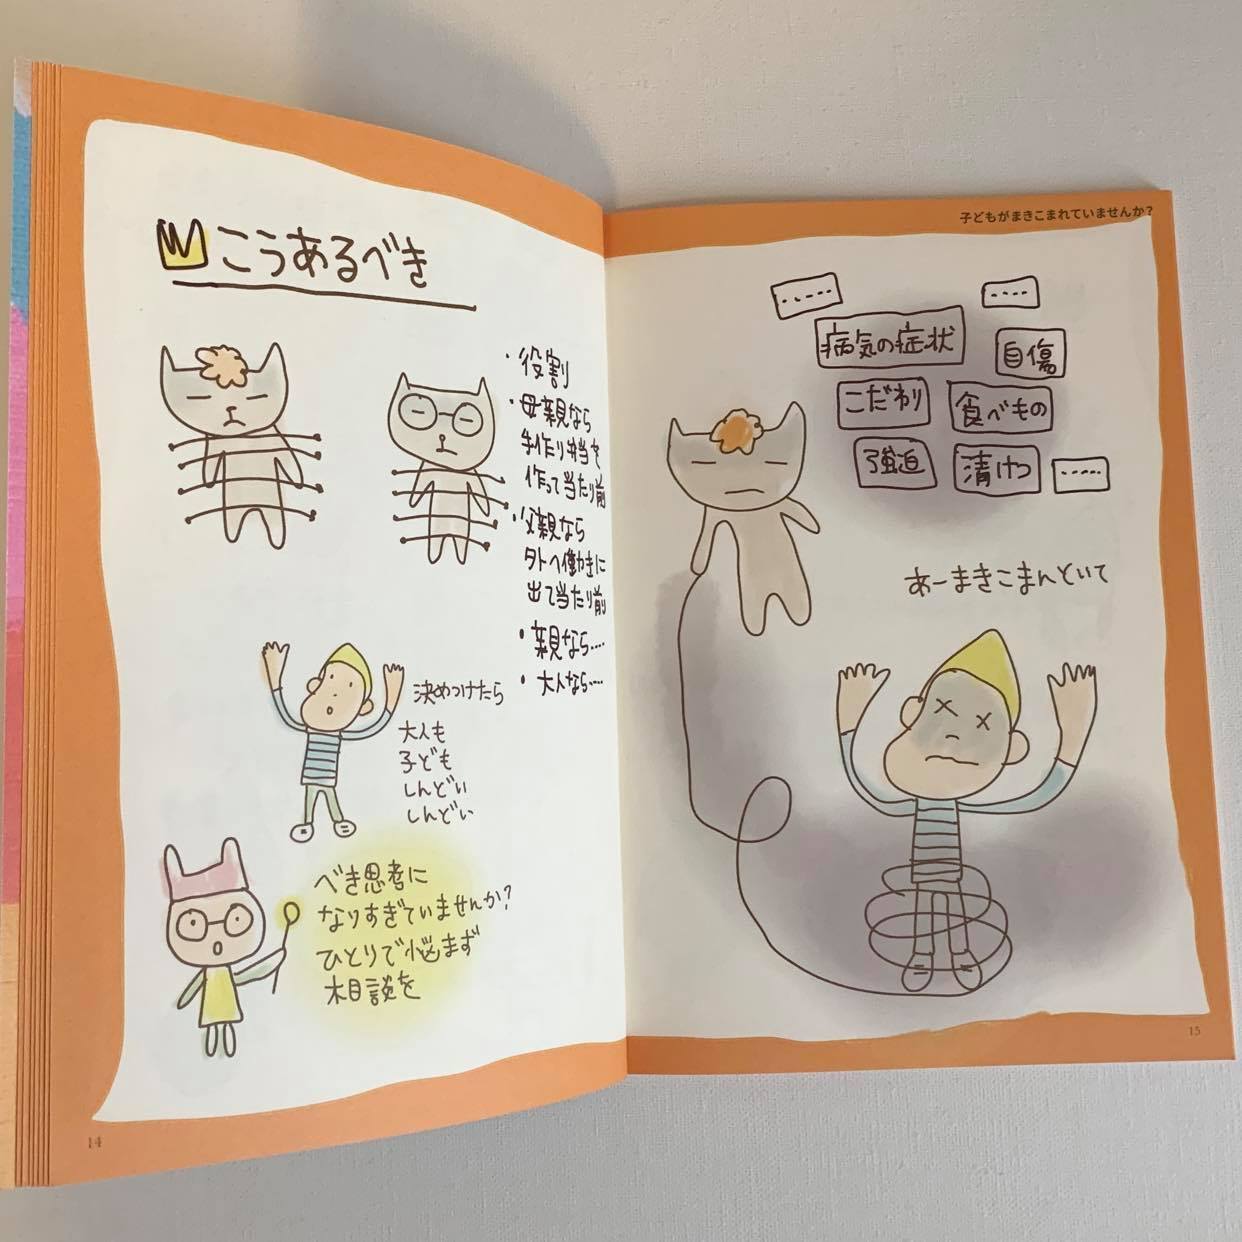 こうあるべき
・役割
・母親なら
手作り弁当を
作って当たり前
・父親なら
外へ働きに
出て当たり前
・親なら‥‥
・大人なら‥‥
決めつけたら
大人も
子ども
しんどい
しんどい
べき思考に
なりすぎていませんか?
ひとりで悩まず
相談を
14
子どもがまきこまれていませんか?
病気の症状
自傷
こだわり
食べもの
強迫
清けつ
あーまきこまんといて
15